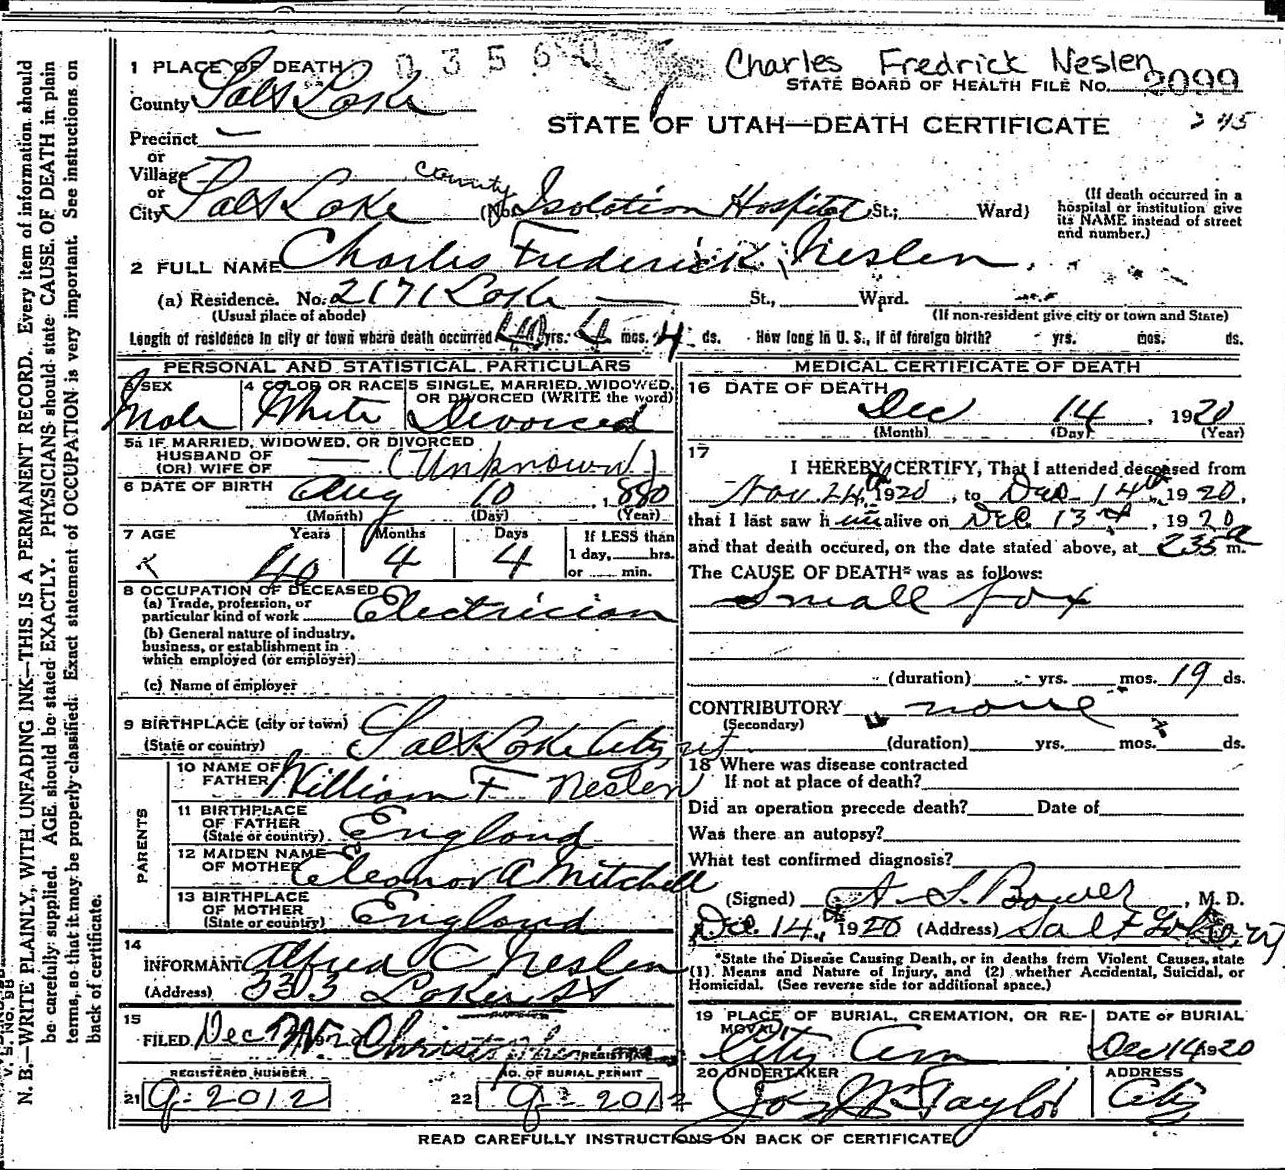 0 3 5 6
Charles Fredrick Neslen
1 PLACE OF DEATH
STATE BOARD OF HEALTH FILE NO. 2099
County Salt Lake
STATE OF UTAH—DEATH CERTIFICATE
245
Precinct —
or
Village
or
City Salt Lake (No. County Isolation Hospital St.; Ward)
(If death occurred in a
hospital or institution give
its NAME instead of street
and number.)
2 FULL NAME Charles Frederick Neslen
(a) Residence. No. 2171 Lake — St., Ward.
(Usual place of abode) (If non-resident give city or town and State)
Length of residence in city or town where death occurred 40 yrs. 4 mos. 4 ds. How long in U. S., if of foreign birth? yrs. mos. ds.
PERSONAL AND STATISTICAL PARTICULARS
3 SEX Male
4 COLOR OR RACE White
5 SINGLE, MARRIED, WIDOWED,
OR DIVORCED (WRITE the word)
Divorced
5a IF MARRIED, WIDOWED, OR DIVORCED
HUSBAND OF
(OR) WIFE OF — (Unknown)
6 DATE OF BIRTH Aug 10, 1880
(Month) (Day) (Year)
7 AGE Years Months Days If LESS than
1 day, hrs.
or min.
40 4 4
8 OCCUPATION OF DECEASED
(a) Trade, profession, or
particular kind of work Electrician
(b) General nature of industry,
business, or establishment in
which employed (or employer)
(c) Name of employer
9 BIRTHPLACE (city or town)
(State or country) Salt Lake City, ut
PARENTS
10 NAME OF
FATHER William F Neslen
11 BIRTHPLACE
OF FATHER
(State or country) England
12 MAIDEN NAME
OF MOTHER Eleonor A Mitchell
13 BIRTHPLACE
OF MOTHER
(State or country) England
14
INFORMANT Alfred C Neslen
(Address) 3303 Lake St
15
FILED Dec
REGISTRAR
REGISTERED NUMBER NO. OF BURIAL PERMIT
21 9-2012 22 9-2012
MEDICAL CERTIFICATE OF DEATH
16 DATE OF DEATH
Dec 14, 1920
(Month) (Day) (Year)
17
I HEREBY CERTIFY, That I attended deceased from
Nov. 24th 1920, to Dec 14th, 1920,
that I last saw him alive on Dec 13th, 1920
and that death occured, on the date stated above, at 235 a m.
The CAUSE OF DEATH* was as follows:
Small pox
(duration) yrs. mos. 19 ds.
CONTRIBUTORY none
(Secondary)
(duration) yrs. mos. ds.
18 Where was disease contracted
If not at place of death?
Did an operation precede death? Date of
Was there an autopsy?
What test confirmed diagnosis?
(Signed) A. S. Bower, M. D.
Dec. 14th, 1920 (Address) Salt Lake City
*State the Disease Causing Death, or in deaths from Violent Causes, state
(1) Means and Nature of Injury, and (2) whether Accidental, Suicidal, or
Homicidal. (See reverse side for additional space.)
19 PLACE OF BURIAL, CREMATION, OR RE-
MOVAL
City Cem
DATE OF BURIAL
Dec 14 1920
20 UNDERTAKER
Jos Wm Taylor
ADDRESS
City
READ CAREFULLY INSTRUCTIONS ON BACK OF CERTIFICATE
V. S. NO. 98
N. B.—WRITE PLAINLY, WITH UNFADING INK—THIS IS A PERMANENT RECORD. Every item of information should
be carefully supplied. AGE should be stated EXACTLY. PHYSICIANS should state CAUSE OF DEATH in plain
terms, so that it may be properly classified. Exact statement of OCCUPATION is very important. See instructions on
back of certificate.